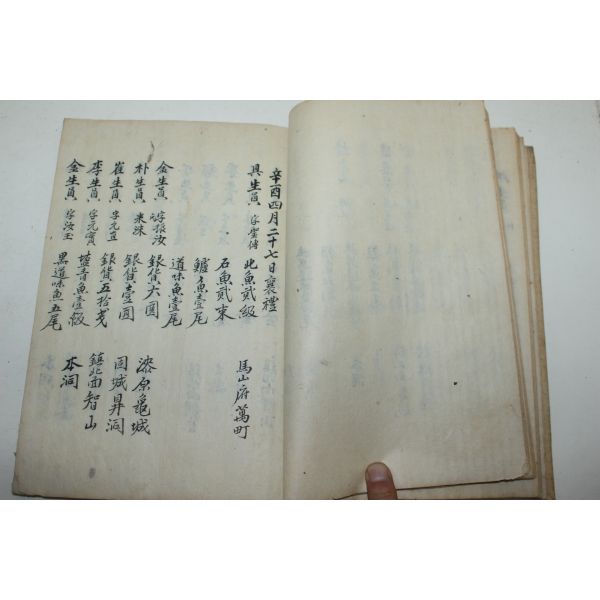 辛酉四月二十七日襄禮
具生員 字聖傳 北魚貳級 馬山府萬町
石魚貳束
鱸魚壹尾
道味魚壹尾
金生員 字振汝 銀貨六圓 漆原龜城
朴生員 來洙 銀貨壹圓 固城昇洞
崔生員 字元直 銀貨五拾戔 鎮北面智山
李生員 字元實 塩青魚壹級 本洞
金生員 字汝玉 黑道味魚五尾